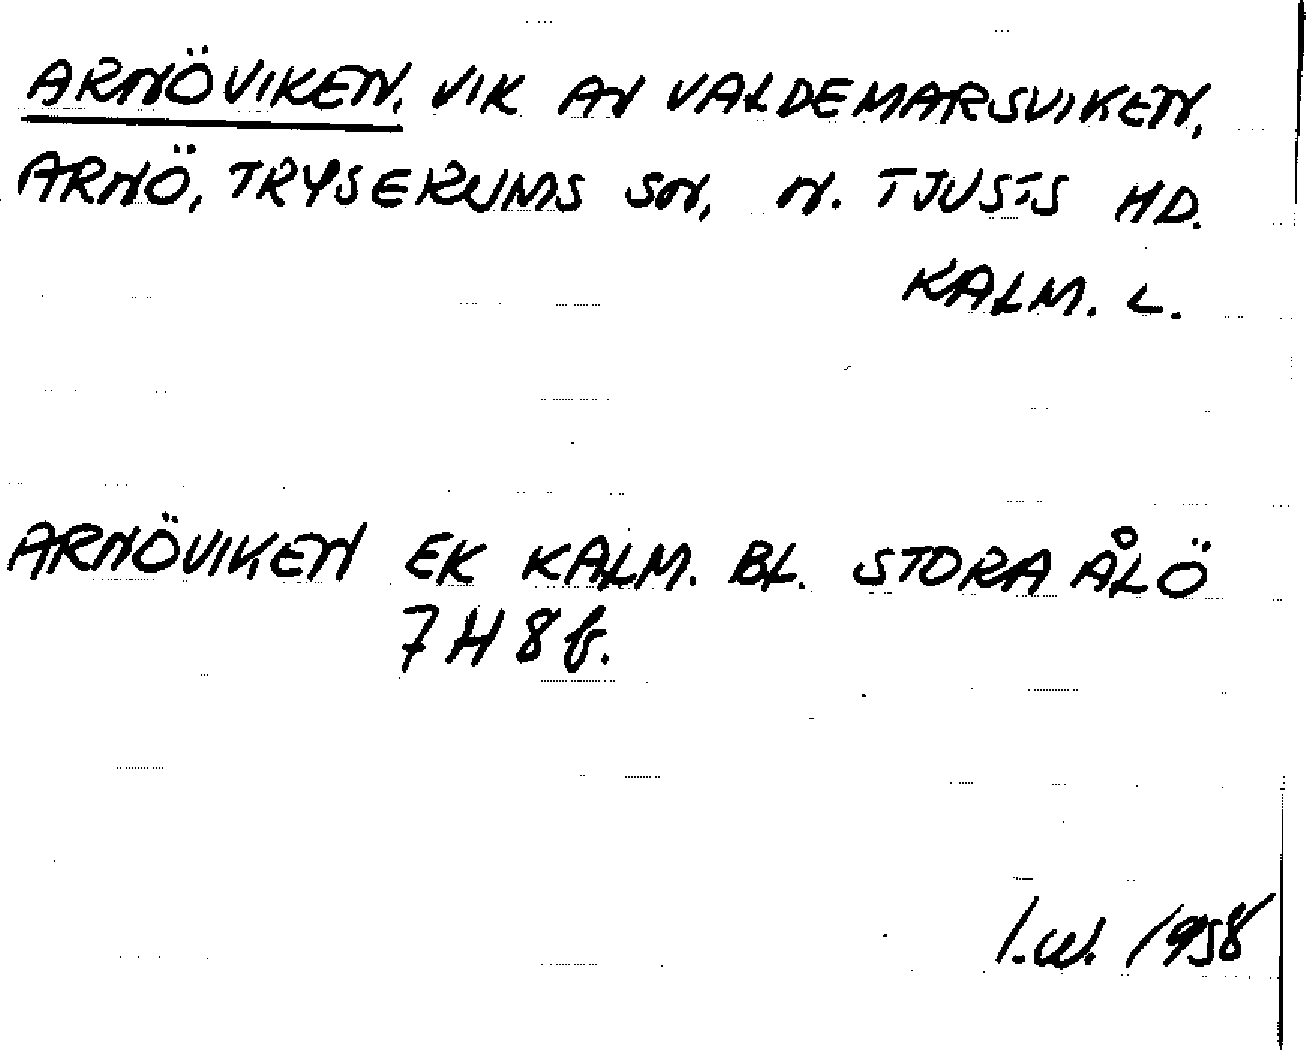 ARNÖVIKEN, VIK AV VALDEMARSVIKEN,
ARNÖ, TRYSERUMS SN, N. TJUSTS HD.
KALM. L.
ARNÖVIKEN EK KALM. BL. STORA ÅLÖ
7H8b.
I.W. 1958